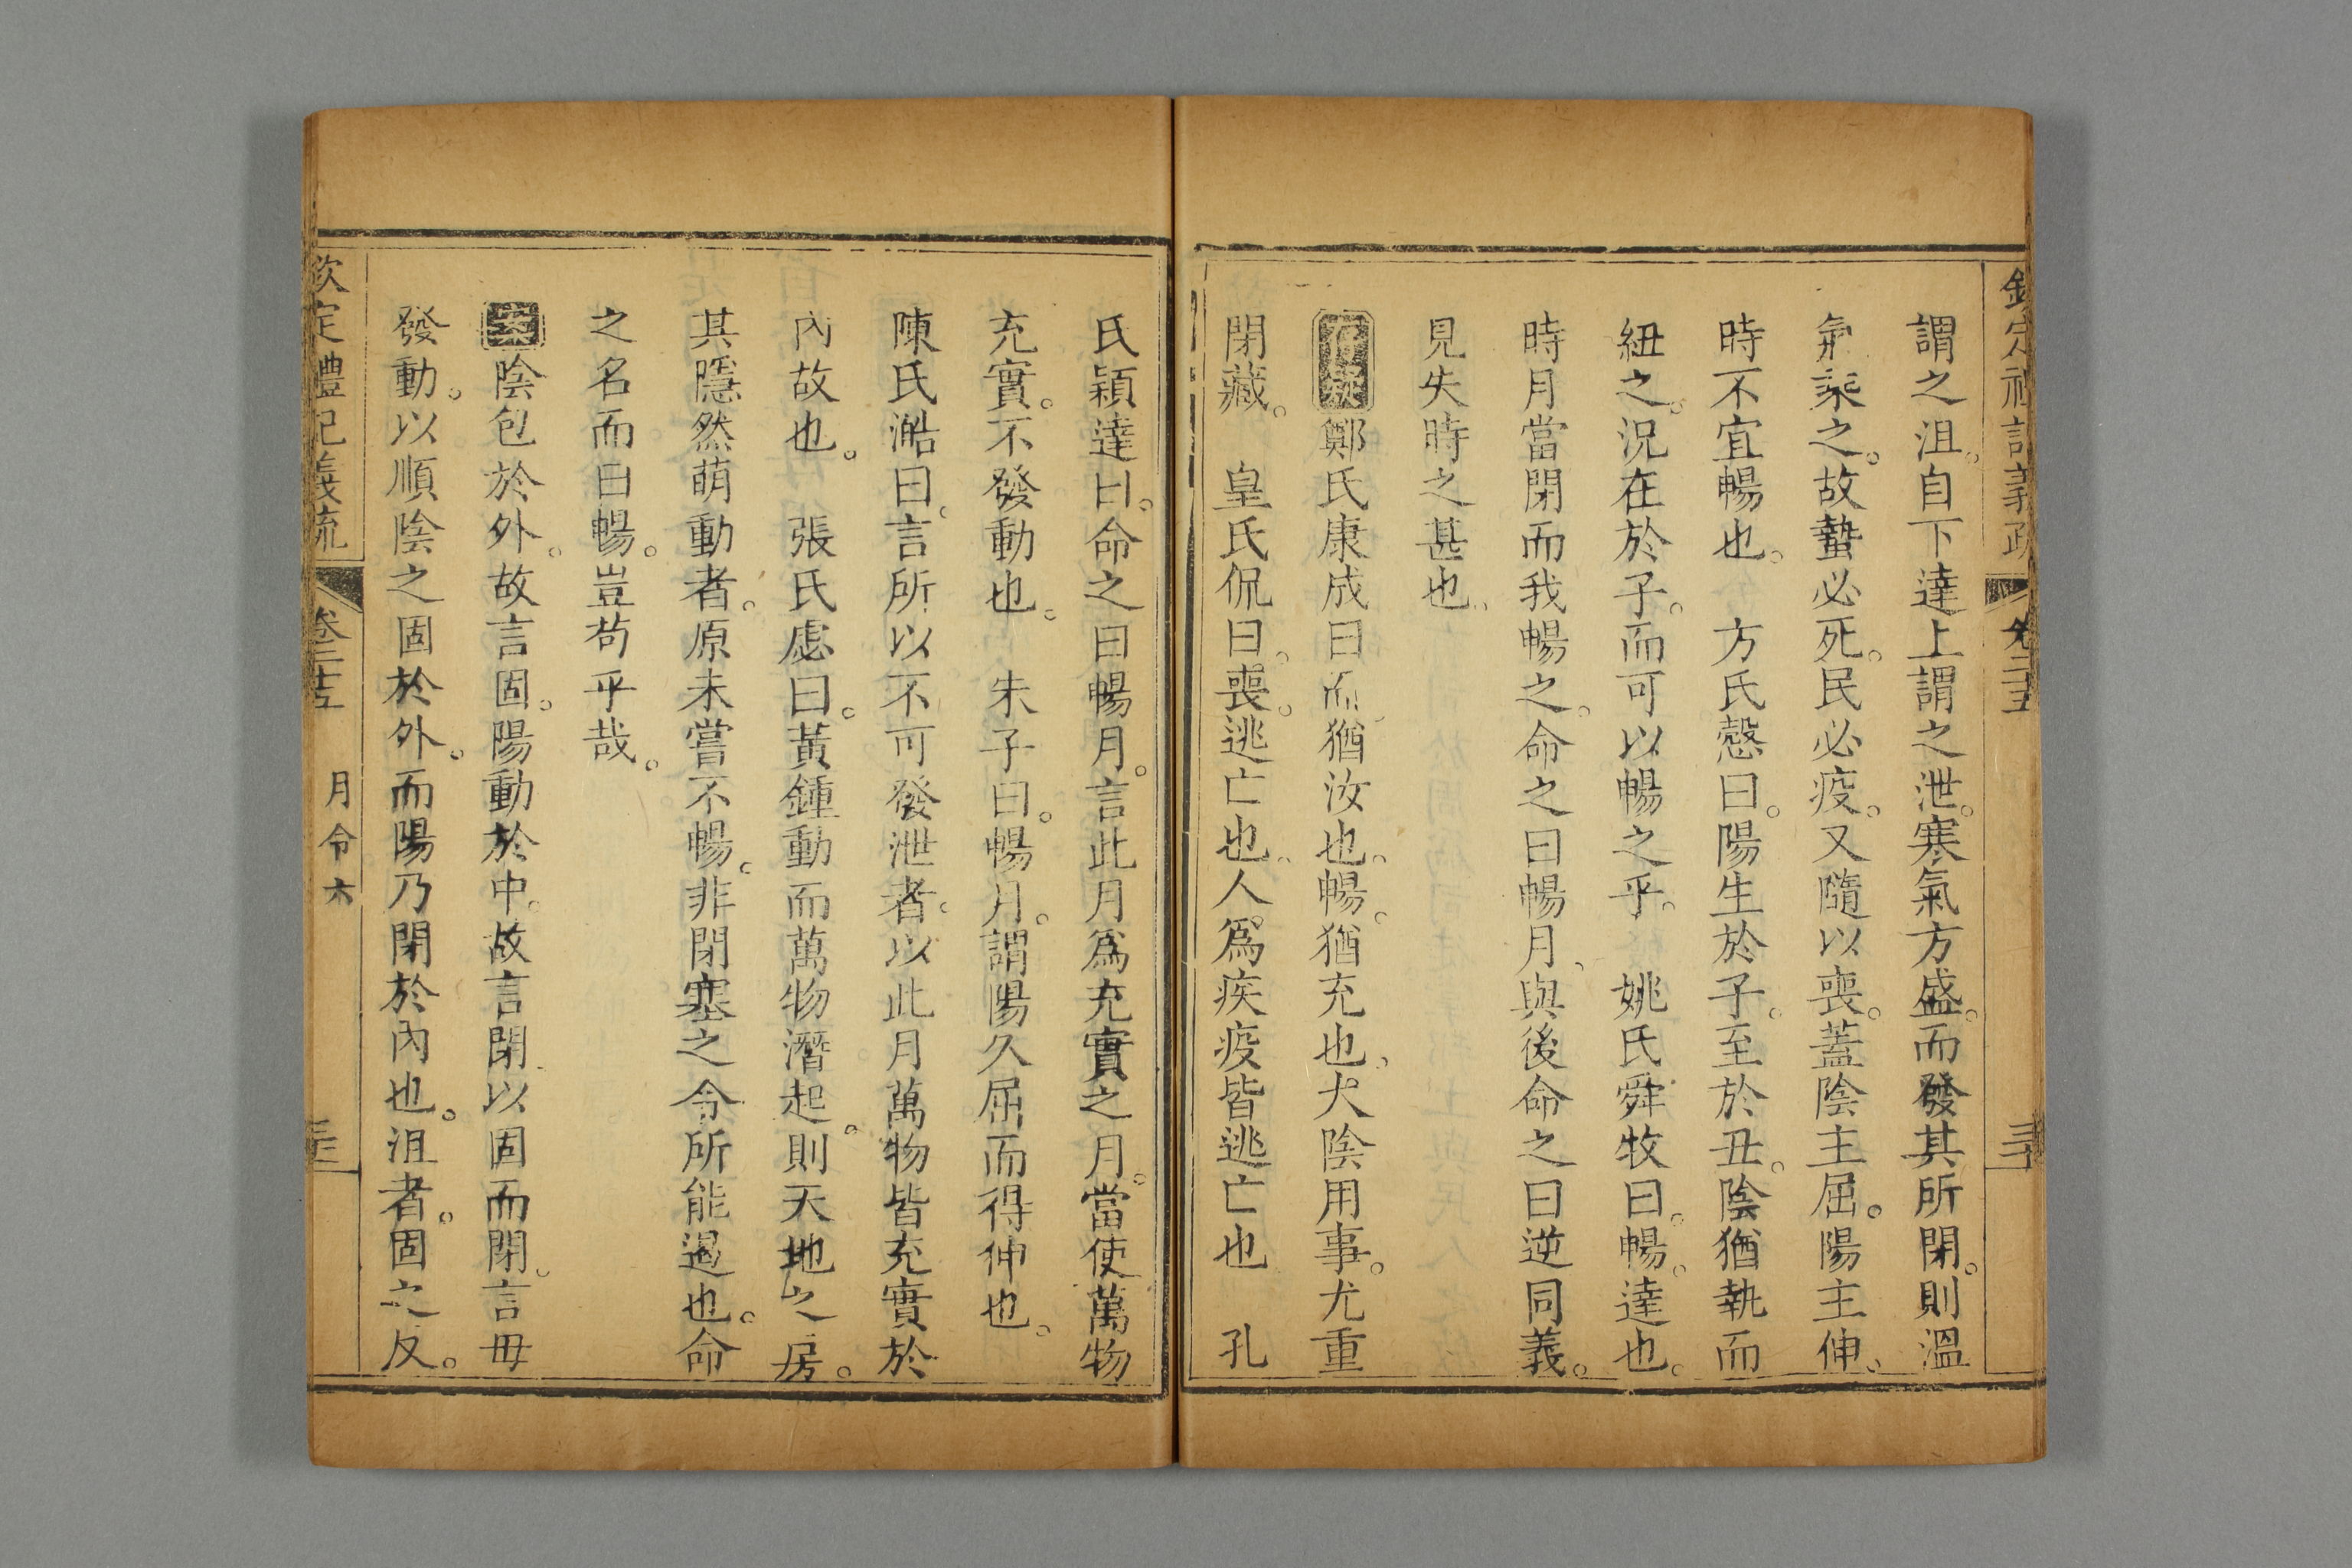 謂之沮。自下達上謂之泄。寒氣方盛。而發其所閉。則溫
氣乘之。故蟄必死。民必疫。又隨以喪。蓋陰主屈。陽主伸。
時不宜暢也。 方氏慤曰。陽生於子。至於丑。陰猶執而
紐之。況在於子。而可以暢之乎。 姚氏舜牧曰。暢。達也。
時月當閉而我暢之。命之曰暢月。與後命之曰逆同義。
見失時之甚也。
存疑鄭氏康成曰。而。猶汝也。暢。猶充也。大陰用事。尤重
閉藏。 皇氏侃曰。喪。逃亡也。人爲疾疫皆逃亡也 孔
氏穎達曰。命之曰暢月。言此月爲充實之月。當使萬物
充實。不發動也。 朱子曰。暢月。謂陽久屈而得伸也。
陳氏澔曰。言所以不可發泄者。以此月萬物皆充實於
內故也。 張氏慮曰。黃鍾動而萬物潛起。則天地之房。
其隱然萌動者。原未嘗不暢。非閉塞之令所能遏也。命
之名而曰暢。豈苟乎哉。
案陰包於外。故言固。陽動於中。故言閉以固而閉。言毋
發動。以順陰之固於外。而陽乃閉於內也。沮者。固之反。
欽定禮記義疏 卷二十五 月令六